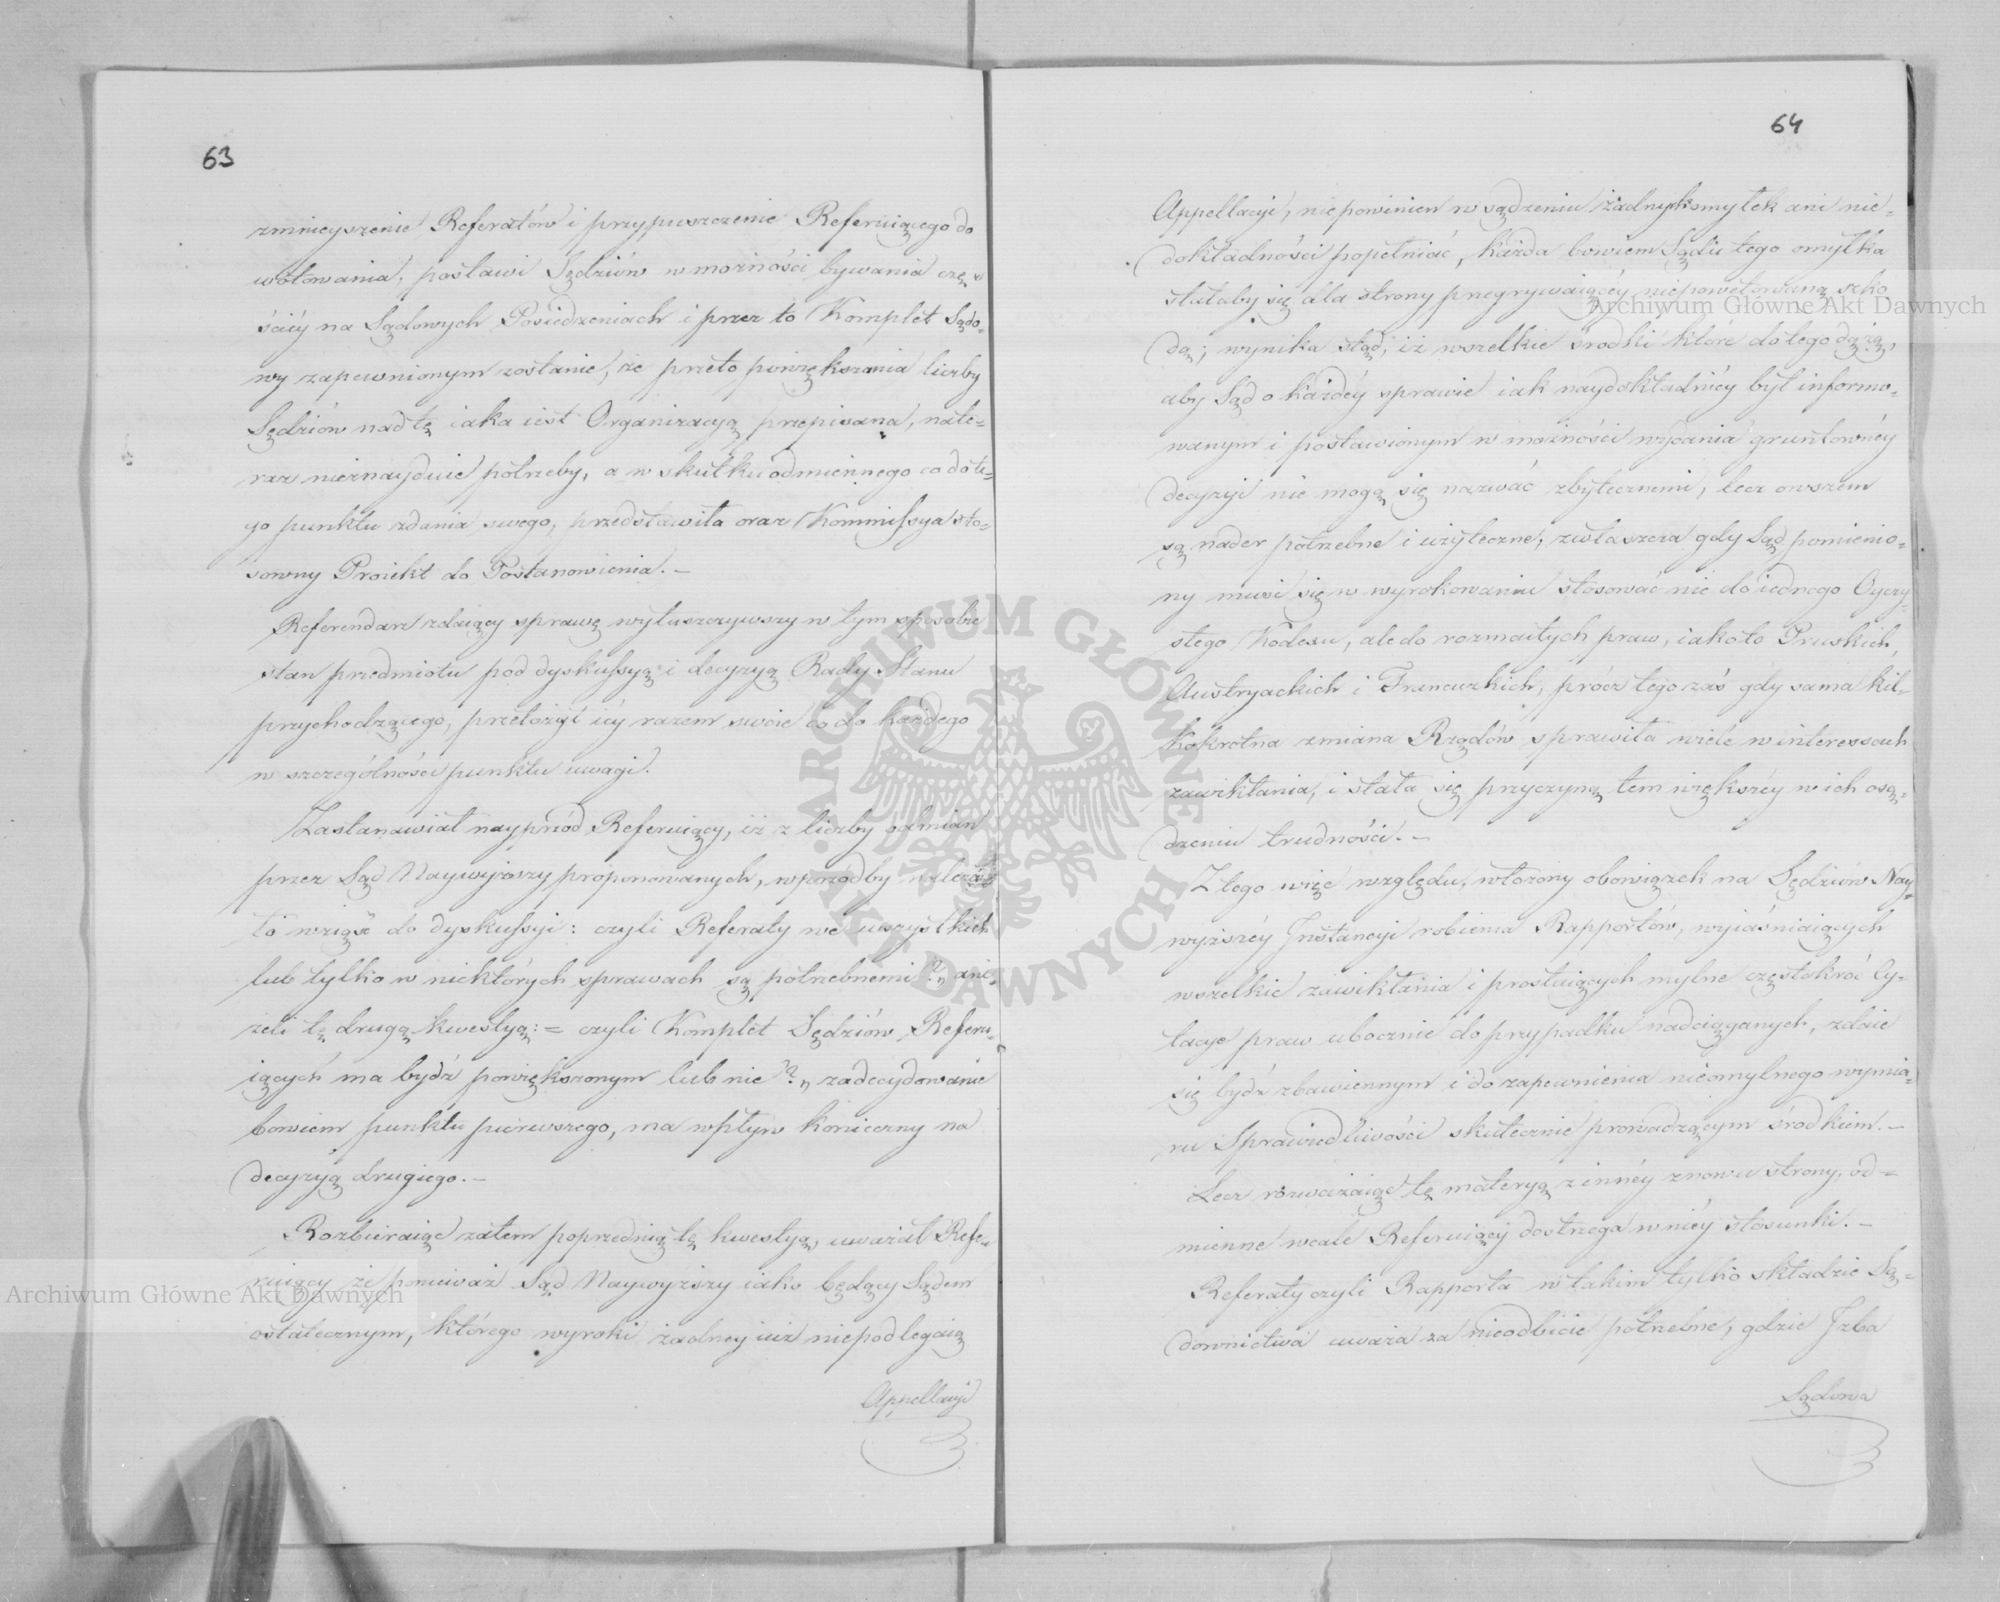 63
zmnieyszenie Referatów i przypuszczenie Referuiącego do
wotowania, postawi Sędziów w możności bywania czę-
ściéy na Sądowych Posiedzeniach i przez to Komplet Sądo-
wy zapewnionym zostanie, że przeto powiększania liczby
Sędziów nad tę iaka iest Organizacyą przepisana, nate-
raz nieznayduie potrzeby, a w skutku odmiennego co do te-
go punktu zdania swego, przedstawiła oraz Kommissya sto-
sowny Proiekt do Postanowienia. –
Referendarz zdaiący sprawę wyłuszczywszy w tym sposobie
stan przedmiotu pod dyskussyą i decyzyą Rady Stanu
przychodzącego, przełożył iéy razem swoie co do każdego
w szczególności punktu uwagi.
Zastanawiał nayprzód Referuiący, iż z liczby odmian
przez Sąd Naywyższy proponowanych, wprzódby należało
to wziąść do dyskussyi: czyli Referaty we wszystkich
lub tylko w niektórych sprawach są potrzebnemi?„ ani-
żeli tę drugą kwestyą: = czyli Komplet Sędziów Referu-
iących ma bydź powiększonym lub nie?„ zadecydowanie
bowiem punktu pierwszego, ma wpływ konieczny na
decyzyą drugiego. –
Rozbieraiąc zatem poprzednią tę kwestyą, uważał Refe-
ruiący że ponieważ Sąd Naywyższy iako będący Sądem
ostatecznym, którego wyroki żadney iuż niepodlegaią
Appellacyi
64
Appellacyi, niepowinien w sądzeniu żadnych omyłek ani nie-
dokładności popełniać, każda bowiem Sądu tego omyłka
stałaby się dla strony przegrywaiącéy niepowetowaną szko-
dą; wynika stąd, iż wszelkie środki które do tego dążą,
aby Sąd o każdéy sprawie iak naydokładniéy był informo-
wanym i postawionym w możności wydania gruntownéy
decyzyi nie mogą się nazwać zbytecznemi, lecz owszem
są nader potrzebne i użyteczne, zwłaszcza gdy Sąd pomienio-
ny musi się w wyrokowaniu stosować nie do iednego Oyczy-
stego Kodexu, ale do rozmaitych praw, iako to Pruskich,
Austryackich i Francuzkich, prócz tego zaś gdy sama kil-
kokrotna zmiana Rządów sprawiła wiele w interessach
zawikłania, i stała się przyczyną tem większéy w ich osą-
dzeniu trudności. –
Z tego więc względu, włożony obowiązek na Sędziów Nay-
wyższéy Instancyi robienia Rapportów, wyiaśniaiących
wszelkie zawikłania i prostuiących mylne częstokroć Cy-
tacye praw ubocznie do przypadku nadciąganych, zdaie
się bydź zbawiennym i do zapewnienia nieomylnego wymia-
ru Sprawiedliwości skutecznie prowadzącym środkiem. –
Lecz rozważaiąc tę materyą z innéy znowu strony, od=
mienne wcale Referuiący dostrzega w niéy stosunki. –
Referaty czyli Rapporta w takim tylko składzie Są=
downictwa uważa za nieodbicie potrzebne, gdzie Izba
Sądowa
Archiwum Główne Akt Dawnych
Archiwum Główne Akt Dawnych
ARCHIWUM GŁÓWNE AKT DAWNYCH